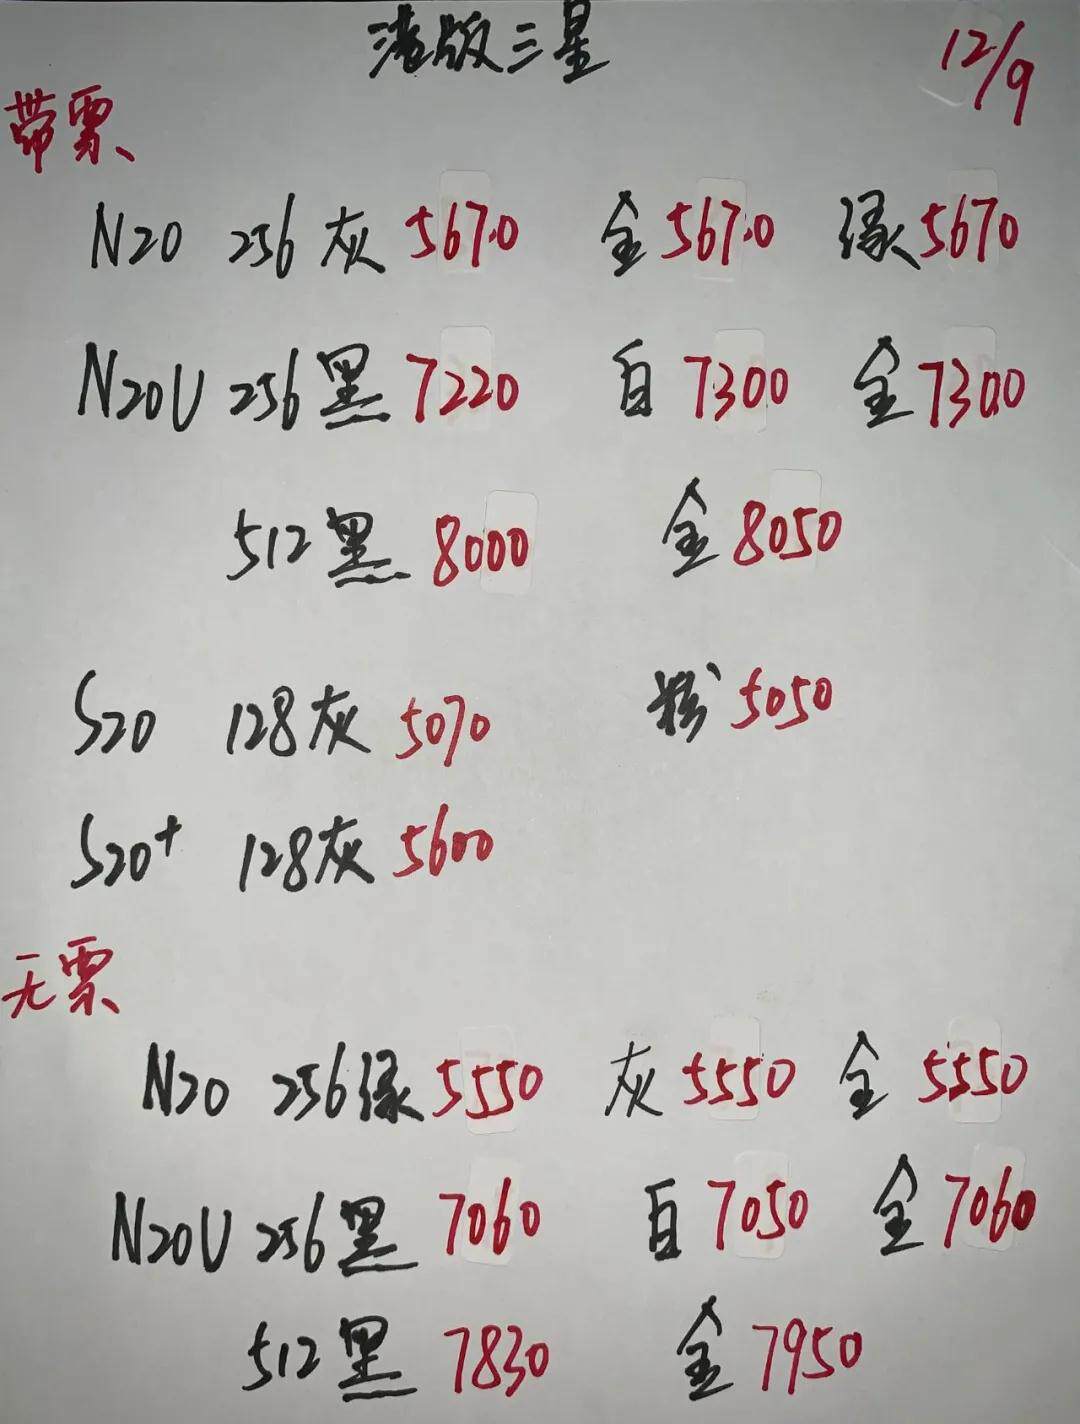 港版三星 12/9
带票
N20 256 灰 5670 金 5670 绿 5670
N20U 256 黑 7220 白 7300 金 7300
512 黑 8000 金 8050
S20 128 灰 5070 粉 5050
S20+ 128 灰 5600
无票
N20 256 绿 5550 灰 5550 金 5550
N20U 256 黑 7060 白 7050 金 7060
512 黑 7830 金 7950